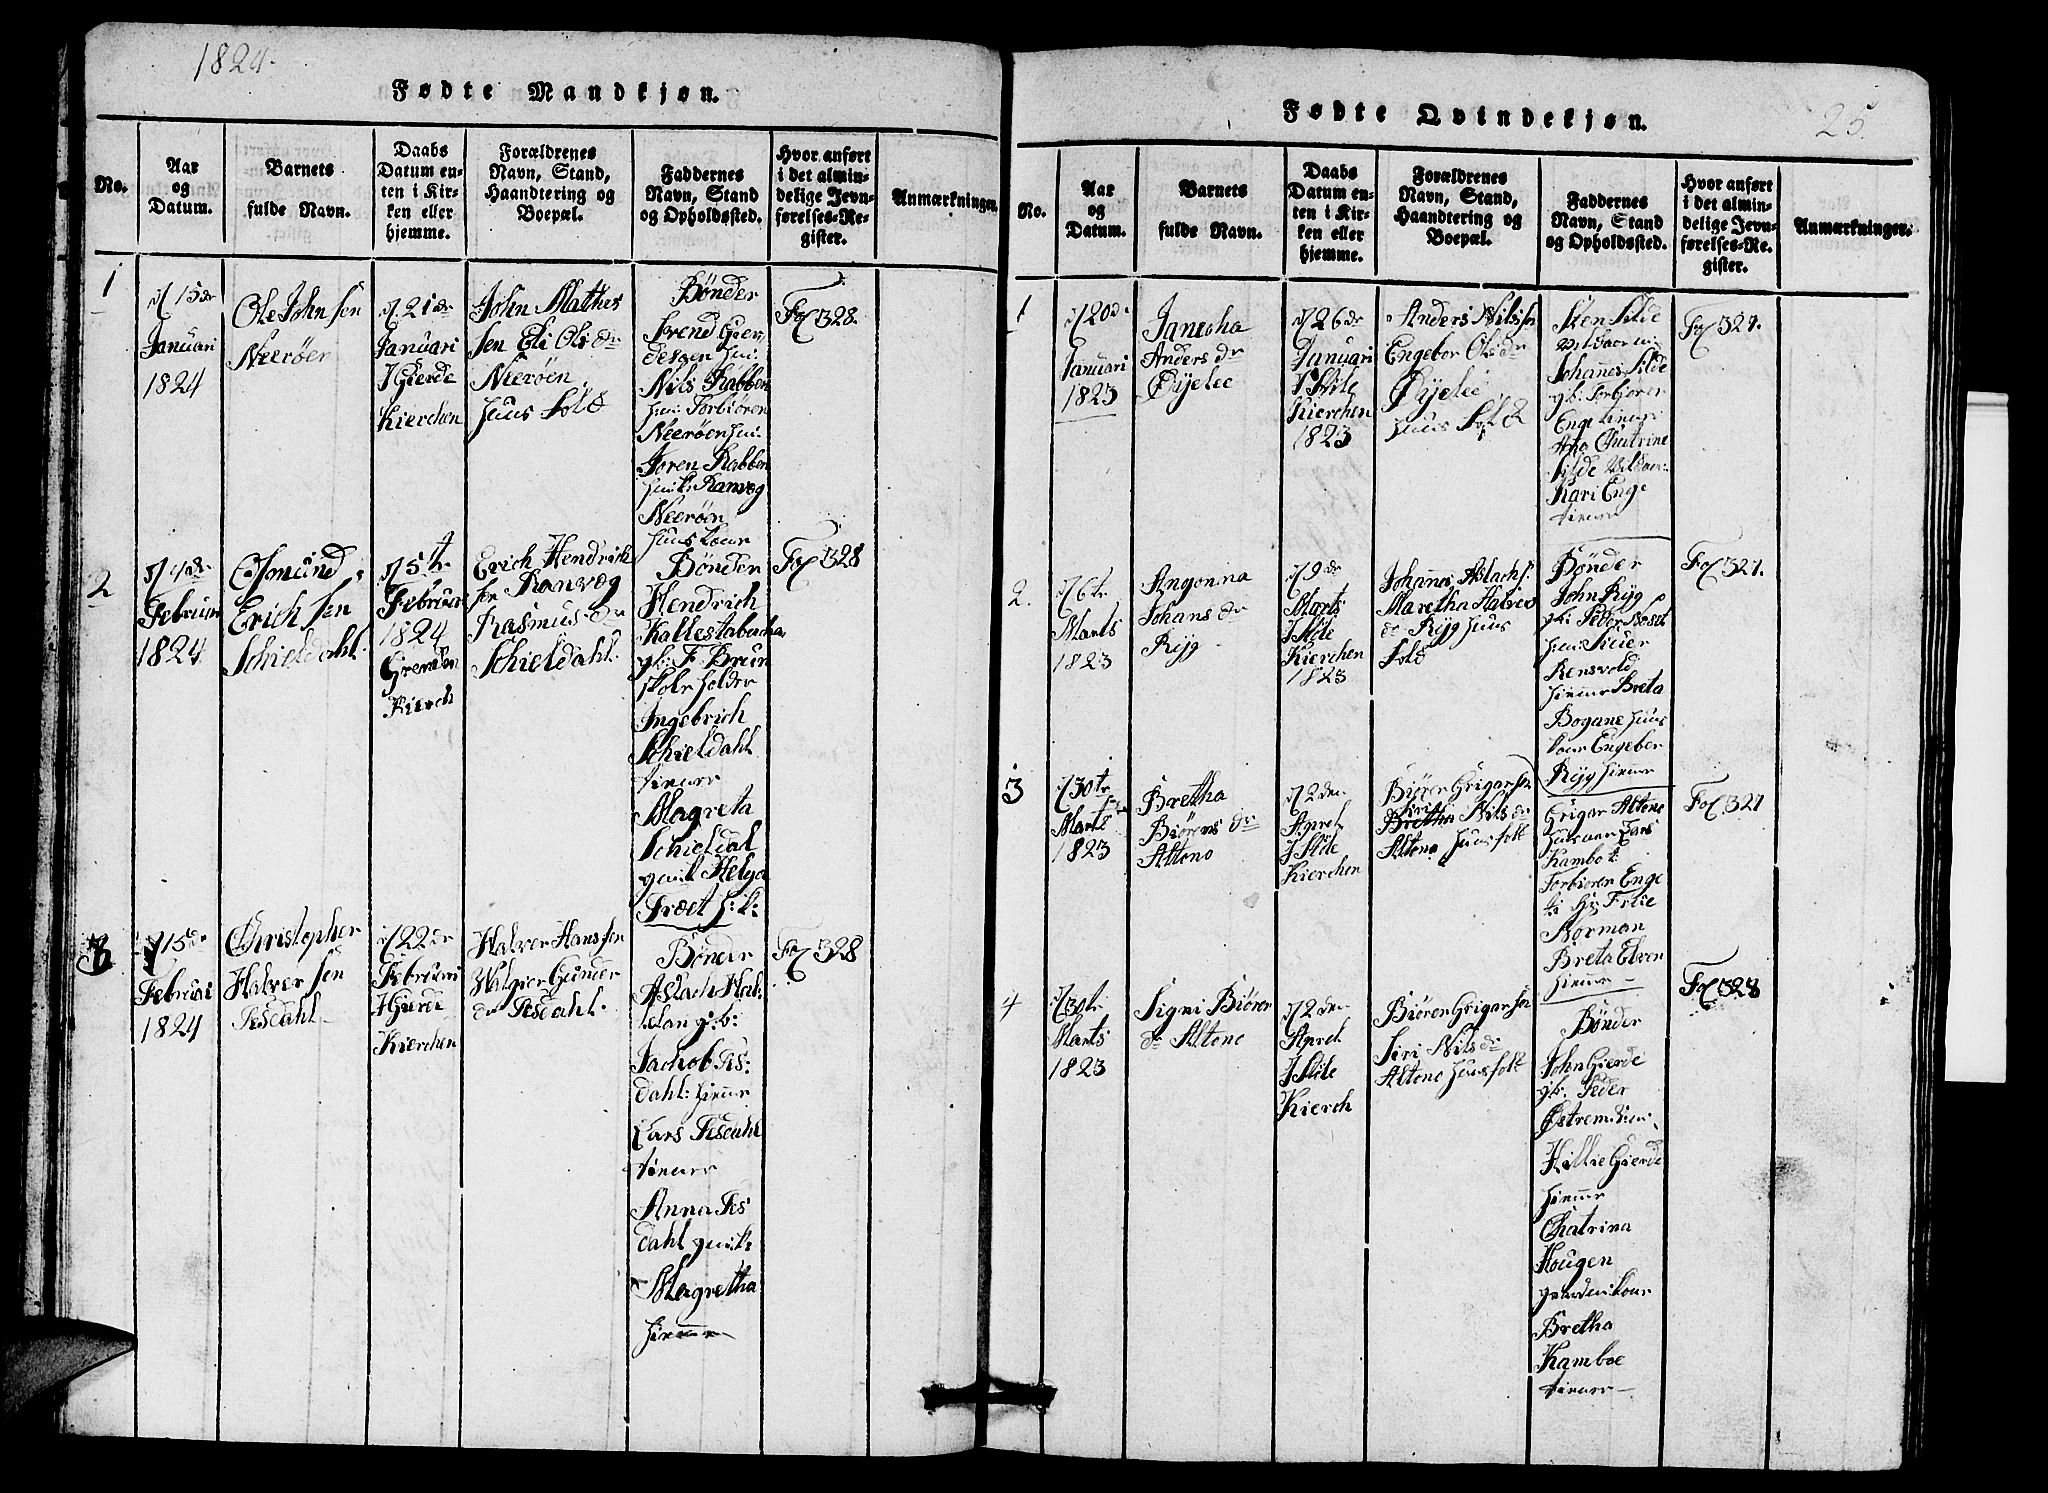 1824.
Fødte Mandkjøn.
No.
Aar
og
Datum.
Barnets
fulde Navn.
Daabs
Datum en-
ten i Kir-
ken eller
hjemme.
Forældrenes
Navn, Stand,
Haandtering og
Boepæl.
Faddernes
Navn, Stand
og Opholdssted.
Hvor anført
i det almin-
delige Jevn-
førelses-Re-
gister.
Anmærkninger.
1
15de
Januari
1824
Ole John sen
Neerøen
21de
Januari
I Gierde
Kierchen
John Mathes
sen Eli Ols dr
Neerøen
Huus Fold
Bønder
Svend Gier
Nils Rabben
Torbiøren
Neerøen
Joren Rabben
Ranveg
Neerøen
Huus Konr
Fol 328.
2
4de
Februari
1824
Osmund
Erich sen
Schieldahl.
5te
Februar
1824
Grenden
Kierch
Erich Hendrich
sen Ranveg
Rasmus dr
Schieldahl.
Bønder
Hendrich
Kallestabacha
gb: F. Brun
skole holder
Ingebrich
Schieldahl
tiener
Magreta
Schieldal
gmk Helga
Træet H:k:
Fol 328
3
15de
Februar
1824
Christopher
Halver sen
Tesdahl
22de
Februari
I Gierde
Kierchen
Halver Hans sen
Gunder
dr Tesdahl.
Bønder
Aslach Hal:
leland g:b:
Jachob Tes:
dahl: hiemr
Lars Tesdahl
tiener
Anna Tes
dahl gmk:
Magretha
hiemr
Fol 328
Fødte Qvindekjøn.
25.
No.
Aar
og
Datum.
Barnets
fulde Navn.
Daabs
Datum en-
ten i Kir-
ken eller
hjemme.
Forældrenes
Navn, Stand,
Haandtering og
Boepæl.
Faddernes
Navn, Stand
og Opholdssted.
Hvor anført
i det almin-
delige Jevn-
førelses-Re-
gister.
Anmærkninger.
1
20de
Januari
1823
Janecha
Anders dr
26de
Januari
I Skile
Kierchen
1823
Anders Nilssen
Engebor Ols dr
Huus Fold
Sten Silde
Johanes Silde
gb: Torbjører
Enge
Ana Chatrine
Silde
Kari Enge
tiener
Fol 327.
2.
6te
Marts
1823
Angonina
Johans dr
Ryg
9de
Marts
I Skile
Kierchen
1823
Johannes Aslachs:
Maretha Halver
dr Ryg Huus
Fold
Bønder
John Ryg
gb: Peder
Siver
Rensvold
hiemr Breta
Bogane Huus
konr Engeber
Ryg hiemr
Fol 327.
3
30te
Marts
1823
Bretha
Biørens dr
Altono
2den
Aprel
I Skile
Kierchen
Biøren Grigar sen
Siri
Bretha Nils dr
Altono Huus folk
Grigar Altone
Lars
Kamboe
Torbiøren Enge
Borman
Breta Elven
hiemr
Fol 327
4
30te
Marts
1823
Signi Biøren
dr Altono
2den
Aprel
I Skile
Kierch
Biøren Grigar sen
Siri Nils dr
Altono Huus folk
Bønder
John Gierde
gb: Peder
Østrem
Hillie Gierde
hiemr
Chatrina
Hougen
gaarden: konr
Bretha
Kamboe
tiener
Fol 328